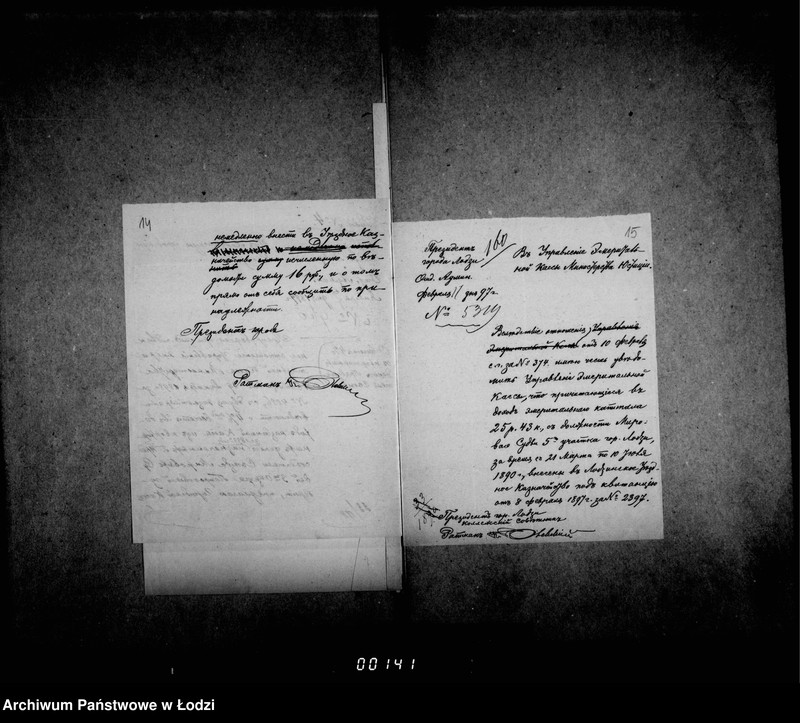 14
немедленно внести в Уѣздное Каз-
начейство исчисленную по вѣ-
домости сумму 16 руб, и о томъ
прямо отъ себя сообщить по при
надлежности.
Президентъ города
Ратманъ
15
Президентъ
города Лодзи
Отд. Админ.
Февраля 11 дня 97 г.
№ 5319
160
Въ Управленіе Эмериталь-
ной Кассы Министерства Юстиціи.
Вслѣдствіе отношенія Управленія
Эмеритальной Кассы отъ 10 Февраля
с.г. за № 374 имѣю честь увѣдо-
мить Управленіе Эмеритальной
Кассы, что причитающіеся въ
доходъ эмеритальнаго капитала
25 р. 43 к., съ должности Миро-
ваго Судьи 5го участка гор. Лодзи,
за время съ 21 Марта по 10 Іюня
1890 г., внесены въ Лодзинское Уѣзд-
ное Казначейство подъ квитанцію
отъ 8 Февраля 1897 г. за № 2397.
Президентъ гор. Лодзи
Коллежскій Совѣтникъ
Ратманъ
00141
Archiwum Państwowe w Łodzi